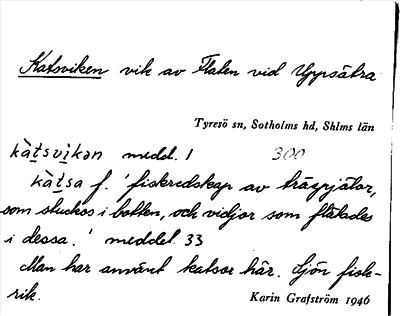 Katsviken vik av Flaten vid Uppsätra
Tyresö sn, Sotholms hd, Shlms län
kàtsvìkən medd. 1 300
kàtsa f. 'fiskredskap av träspjälor,
som stuckos i botten, och vidjor som flätades
i dessa.' meddel. 33
Man har använt katsor här. Sjön fisk-
rik. Karin Grafström 1946